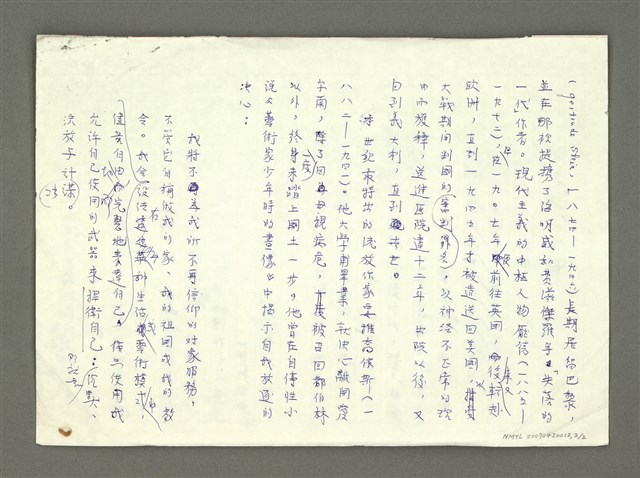 (Gertrude Stein, 一八七四—一九四六) 長期居留巴黎,
並在那裡提攜了海明威和費滋傑羅等「失落的
一代」作者。現代主義的中樞人物龐德(一八八五—
一九七二),一九〇七年前往英國,後
歐洲,直到一九四五年才被遣送回美國,
大戰期間判國的(審判罪名),以神經不正常的理
由而獲釋,送進醫院達十二年,出院以後,又
回到義大利,直到去世。
本世紀最特出的流放作家要推喬依斯(一
八八二—一九四一)。他大學甫畢業,就決心離開愛
爾蘭,除了一度回母親病危,被召回都柏林
以外,終身未踏上國土一步。他曾在自傳性小
說「藝術家少年時的畫像」中揭示自我放逐的
決心:
我將不為我所不再信仰的對象服務,
不管它自稱做我的家、我的祖國或我的教
令。我會設法透過某種生活或藝術模式,
儘量自由而完整地表達自己,僅只使用我
允許自己使用的武器來捍衛自己:沉默、
流放與計謀。
NMTL 20090420012, 2/2